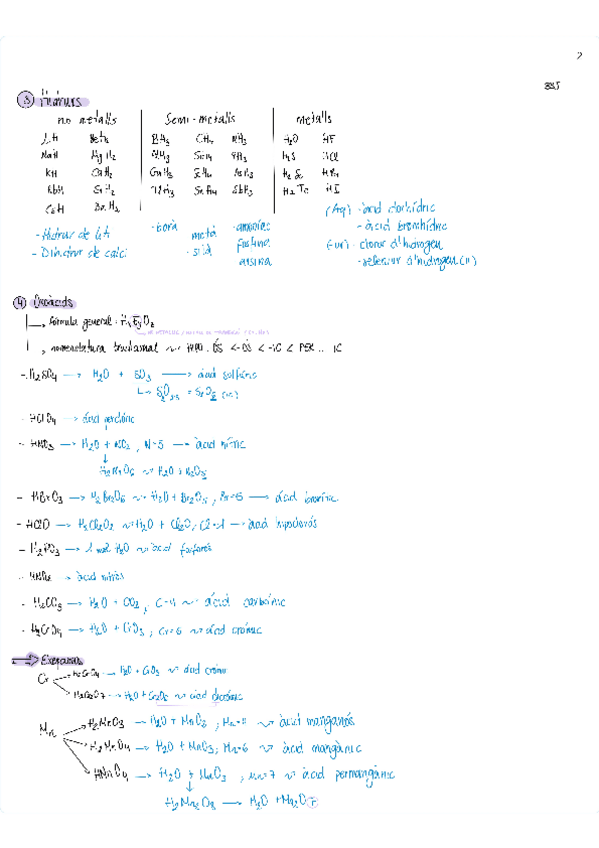 2
③ Hidrurs
no metalls | Semi-metalls | metalls
LiH BeH₂ | BH₃ CH₄ NH₃ | H₂O HF
NaH MgH₂ | AlH₃ SiH₄ PH₃ | H₂S HCl
KH CaH₂ | GaH₃ GeH₄ AsH₃ | H₂Se HBr
RbH SrH₂ | SnH₄ SbH₃ | H₂Te HI
CsH BaH₂
(Aq) - àcid clorhídric
- Hidrur de liti - borà metà - amoníac - àcid bromhídric
- Dihidrur de calci - silà fosfina - clorur d'hidrogen
arsina - seleniur d'hidrogen (II)
④ Oxoàcids
↳ fórmula general:
nomenclatura tradicional ~> HIPO.. ÓS < -ÓS < -IC < PER.. IC
- H₂SO₄ → H₂O + SO₃ → àcid sulfúric
- HClO₄ → àcid perclòric
- HNO₃ → H₂O + NO₂, N=5 → àcid nítric
H₂N₂O₆ ~> H₂O + N₂O₅
- HBrO₃ → H₂Br₂O₆ ~> H₂O + Br₂O₅, Br=5 → àcid bròmic
- HClO → H₂Cl₂O₂ ~> H₂O + Cl₂O, Cl=1 → àcid hipoclorós
- H₃PO₃ → 1 mol H₂O ~> àcid fosforós
- HNO₂ → àcid nitrós
- H₂CO₃ → H₂O + CO₂, C=4 ~> àcid carbònic
- H₂CrO₄ → H₂O + CrO₃; Cr=6 ~> àcid cròmic
⇒ Excepcions
Cr H₂CrO₄ → H₂O + CrO₃ ~> àcid cròmic
H₂Cr₂O₇ → H₂O + Cr₂O₆ ~> àcid dicròmic
Mn H₂MnO₃ → H₂O + MnO₂; Mn=4 ~> àcid manganós
H₂MnO₄ → H₂O + MnO₃; Mn=6 ~> àcid mangànic
HMnO₄ → H₂O + MnO₃, Mn=7 ~> àcid permangànic
H₂Mn₂O₈ → H₂O + Mn₂O₇